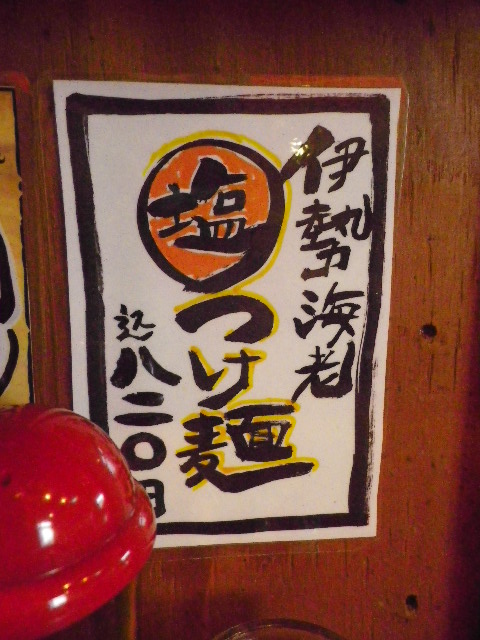 伊勢海老
塩つけ麺
税込八二〇円